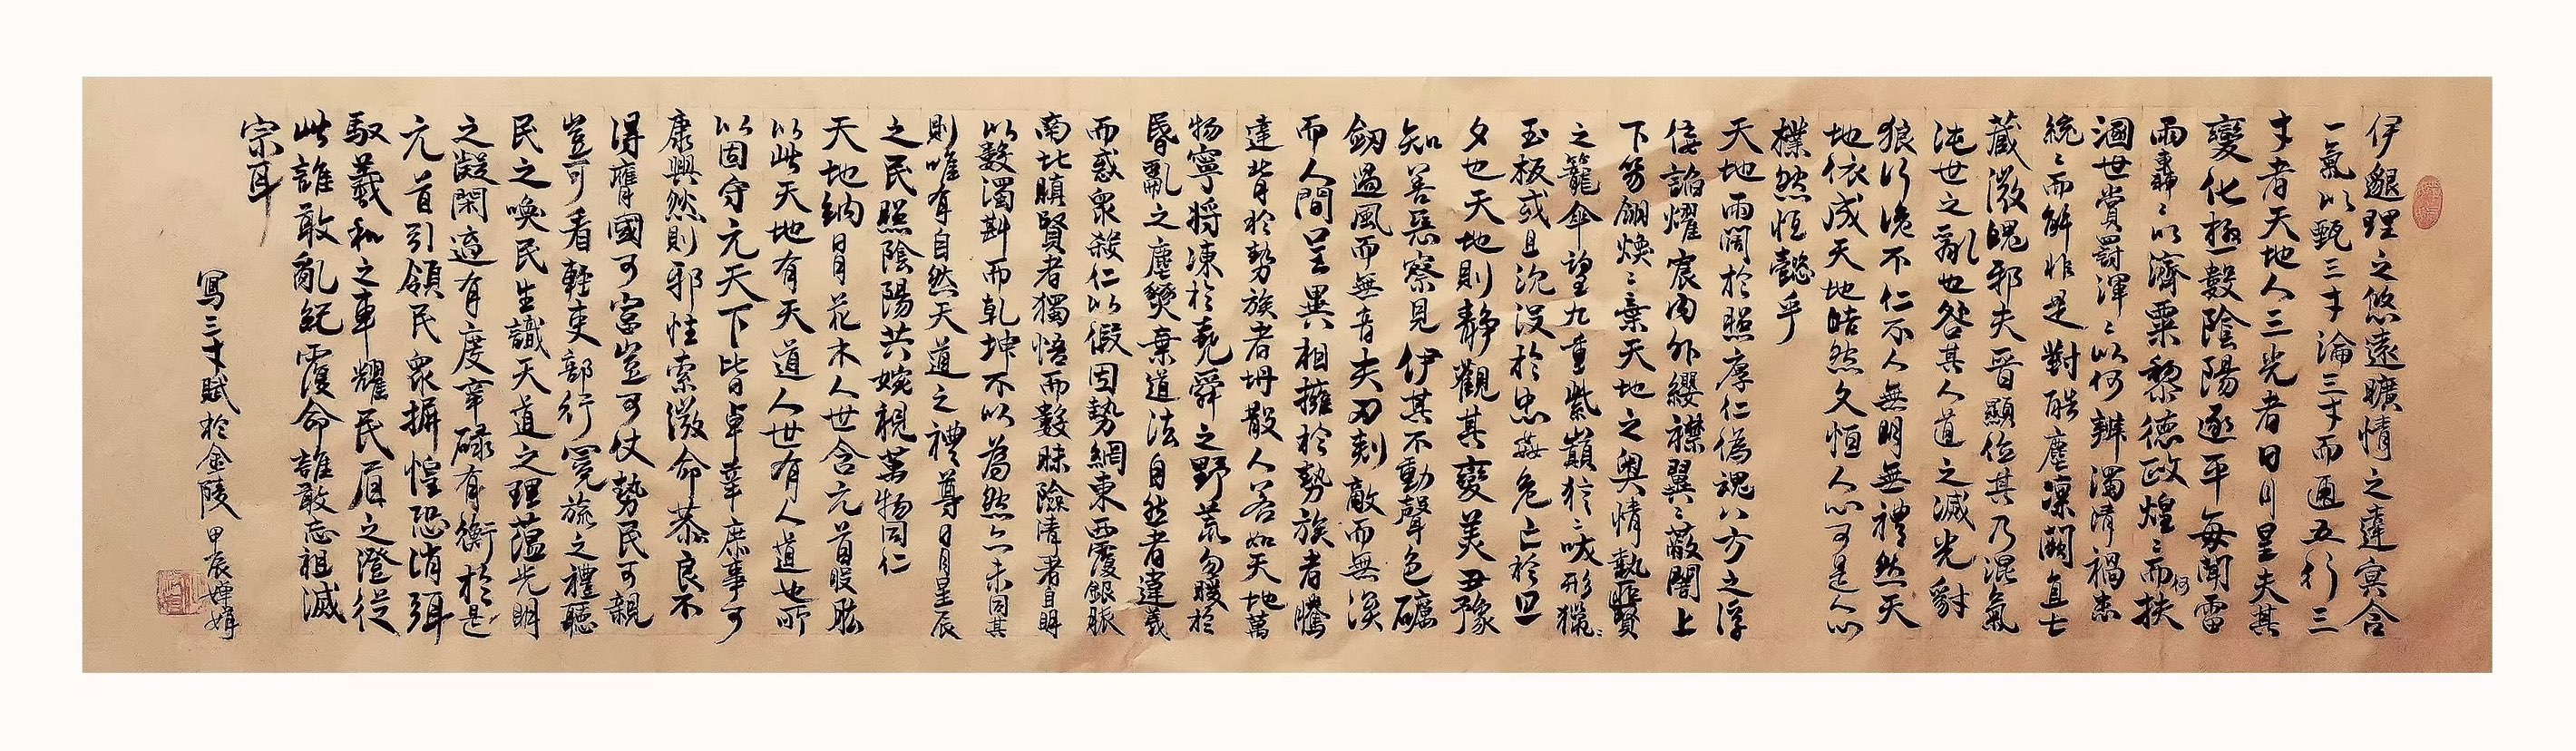 伊邈理之悠遠曠情之達冥合
一氣以甄三才淪三才而通五行三
才者天地人三光者日月星夫其
變化極數陰陽逐平每聞雷
雨森森以濟粟黎德政煌煌而何扶
溷世賞罰渾渾以何辨濁清禍患
統統而解非是對酷塵凜闕直士
藏微魄邪夫晉顯位其乃混氣
沌世之亂也咎其人道之滅光豺
狼行逸不仁不人無明無禮然天
地依成天地皓然久恒人心可是人心
樸然恒懿乎
天地雨闊於照厚仁偽魂八方之浮
佞諂耀宸內外纓襟翼翼蔽闇上
下笏翎煥煥棄天地之奧情執匪賢
之籠傘望九重紫巔狺狺咴形獵獵
玉板或且沈沒於忠姦危亡於旦
夕也天地則靜觀其變美丑豫
知善惡察見伊其不動聲色礪
劍過風而無音夫刃剡敵而無淚
而人間呈異相擁於勢族者騰
達背於勢族者坍散人若如天地萬
物寧將凍於堯舜之野荒勿暖於
昏亂之塵樊棄道法自然者違羲
而惑衆殺仁以假因勢網東西覆銀脤
南北瞋賢者獨悟而數昧險清者自明
以數濁斟而乾坤不以為然亦未因其
則唯有自然天道之禮尊日月星辰
之民照陰陽共婉視萬物同仁
天地納日月花木人世含元首股肱
以此天地有天道人世有人道也所
以固守元天下皆卓華庶事可
康興然則邪性索微命恭良不
得膺國可富豈可仗勢民可親
豈可看輕吏部行冕旒之禮聽
民之喚民生識天道之理蘊光明
之凝閑適有度宰碌有衡於是
元首引領民衆摒惶恐消弭
馭羲和之車耀民眉之澄從
此誰敢亂紀覆命誰敢忘祖滅
宗耳
寫三才賦於金陵甲辰